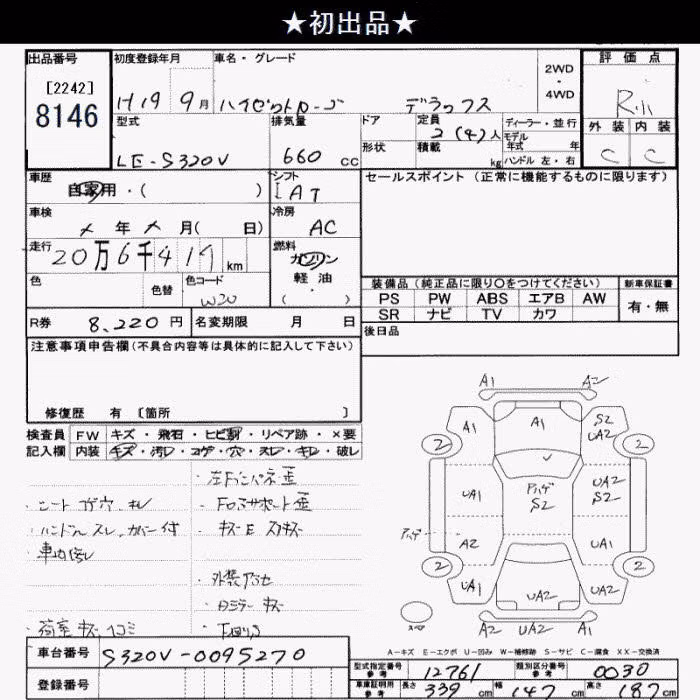 ★初出品★
出品番号
[2242]
8146
初度登録年月
H19 9月
車名・グレード
ハイゼットカーゴ デラックス
2WD
・
4WD
評価点
R小
外装 内装
C C
型式
LE-S320V
排気量
660 cc
ドア
形状
定員
2(4)人
積載
kg
ディーラー・並行
モデル
年式 年
ハンドル 左・右
車歴
自家用・( )
シフト
I AT
セールスポイント(正常に機能するものに限ります)
車検
メ 年 メ 月( 日)
冷房
AC
走行
20万6千417 km
燃料
ガソリン
軽油
( ・ )
色
色替
色コード
W20
装備品(純正品に限り○をつけてください)
新車保証書
PS PW ABS エアB AW
SR ナビ TV カワ
有・無
R券 8,220円
名変期限 月 日
後日品
注意事項申告欄(不具合内容等は具体的に記入して下さい)
修復歴 有 〔箇所 〕
検査員
記入欄
FW キズ・飛石・ヒビ割・リペア跡・×要
内装 キズ・汚レ・コゲ・穴・スレ・キレ・破レ
・シート コゲ穴 キレ
・ハンドル スレ、カバー付
・車内汚レ
・荷室 キズ ヘコミ
・左Fインパネ歪
・Fロアサポート歪
・キズE スリキズ
・外装アセ
・Dミラー キズ
・下廻リS
A1 A2
A1 A1 S2
UA2
2 2
UA1 アハゲ
S2 UA2
S2
アハゲ A2 UA1
2 2
UA1 UA2 UA2
スペア A2 UA2 A1
A-キズ E-エクボ U-凹み W-補修跡 S-サビ C-腐食 XX-交換済
車台番号 S320V-0095270
登録番号
型式指定番号
参考
12761
類別区分番号
参考
0030
車庫証明用
参考
長さ 339 cm 幅 147 cm 高さ 187 cm